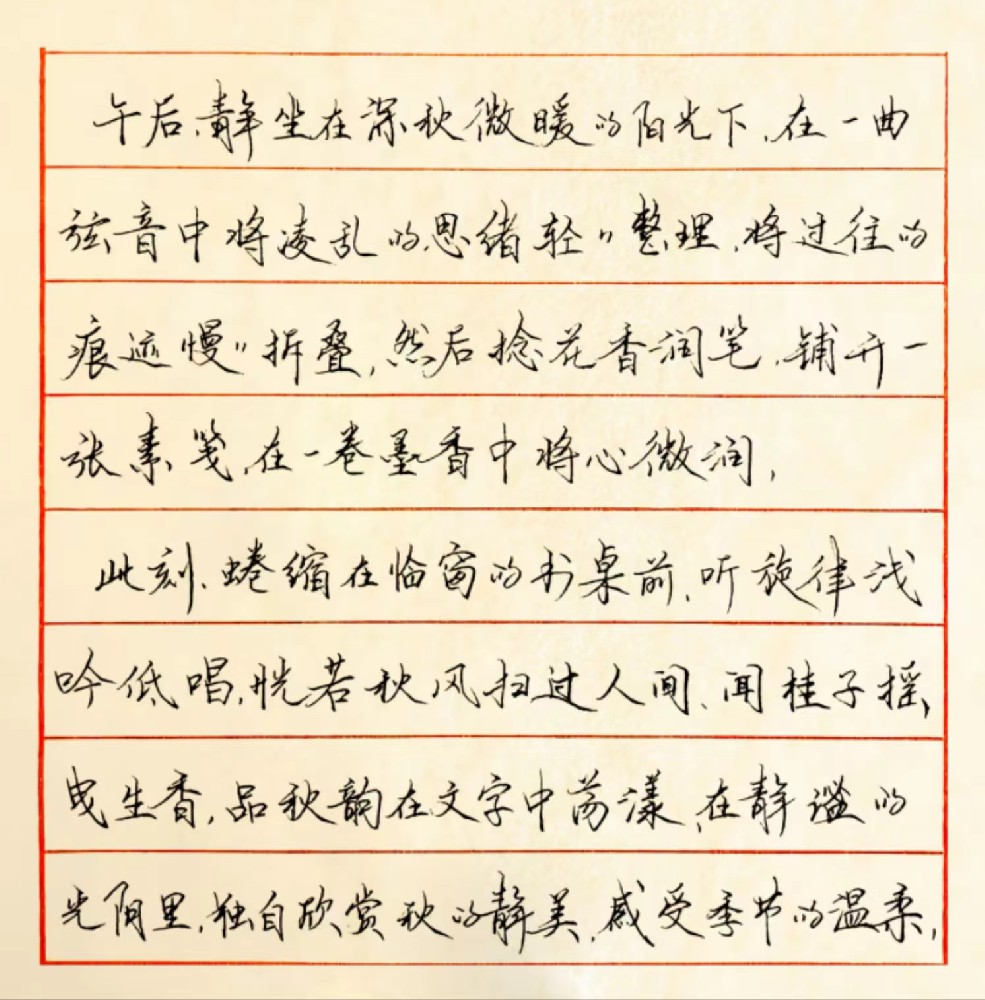 午后,静坐在深秋微暖的阳光下,在一曲
弦音中将凌乱的思绪轻〃整理,将过往的
痕迹慢〃折叠,然后捻花香润笔,铺开一
张素笺,在一卷墨香中将心微润,
此刻、蜷缩在临窗的书桌前,听旋律浅
吟低唱,恍若秋风扫过人间、闻桂子摇,
曳生香,品秋韵在文字中荡漾,在静谧的
光阴里,独自欣赏秋的静美,感受季节的温柔,